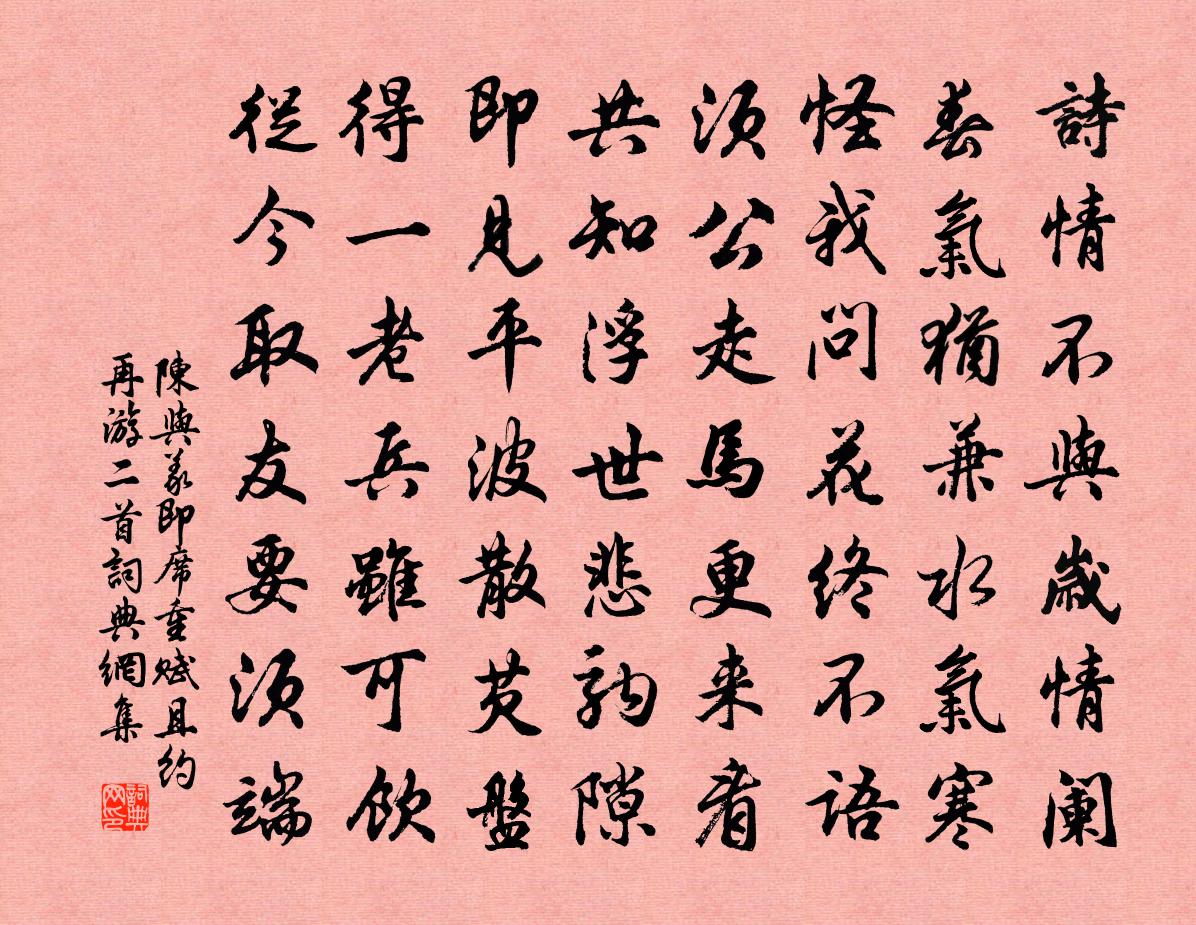 詩情不與歲情闌
春氣猶兼水氣寒
怪我問花終不語
須公走馬更来看
共知浮世悲駒隙
即見平波散芡盤
得一老兵雖可飲
從今取友要須端
陳與義即席重賦且約
再游二首詞典網集
詞典网印